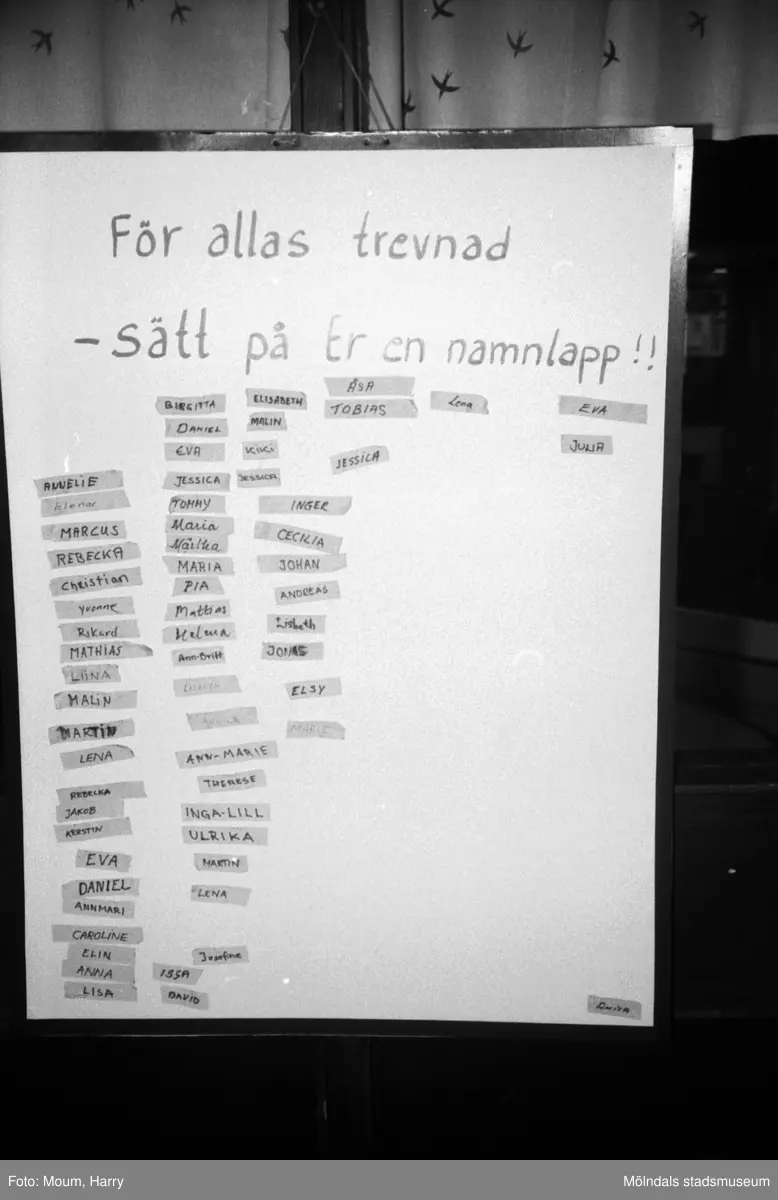 För allas trevnad
- sätt på Er en namnlapp!!
ANNELIE
Elenor
MARCUS
REBECKA
Christian
Yvonne
Rikard
MATHIAS
LIINA
MALIN
MARTIN
LENA
REBECKA
JAKOB
KERSTIN
EVA
DANIEL
ANNMARI
CAROLINE
ELIN
ANNA
LISA
BIRGITTA
DANIEL
EVA
JESSICA
TOMMY
Maria
Märtha
MARIA
PIA
Mattias
Helena
Ann-Britt
ANN-MARIE
THERESE
INGA-LILL
ULRIKA
MARTIN
LENA
Josefine
ISSA
DAVID
ELISABETH
MALIN
KIKI
JESSICA
INGER
CECILIA
JOHAN
ANDREAS
Lisbeth
JONAS
ELSY
MARIE
ÅSA
TOBIAS
JESSICA
Lena
EVA
JULIA
Foto: Moum, Harry
Mölndals stadsmuseum